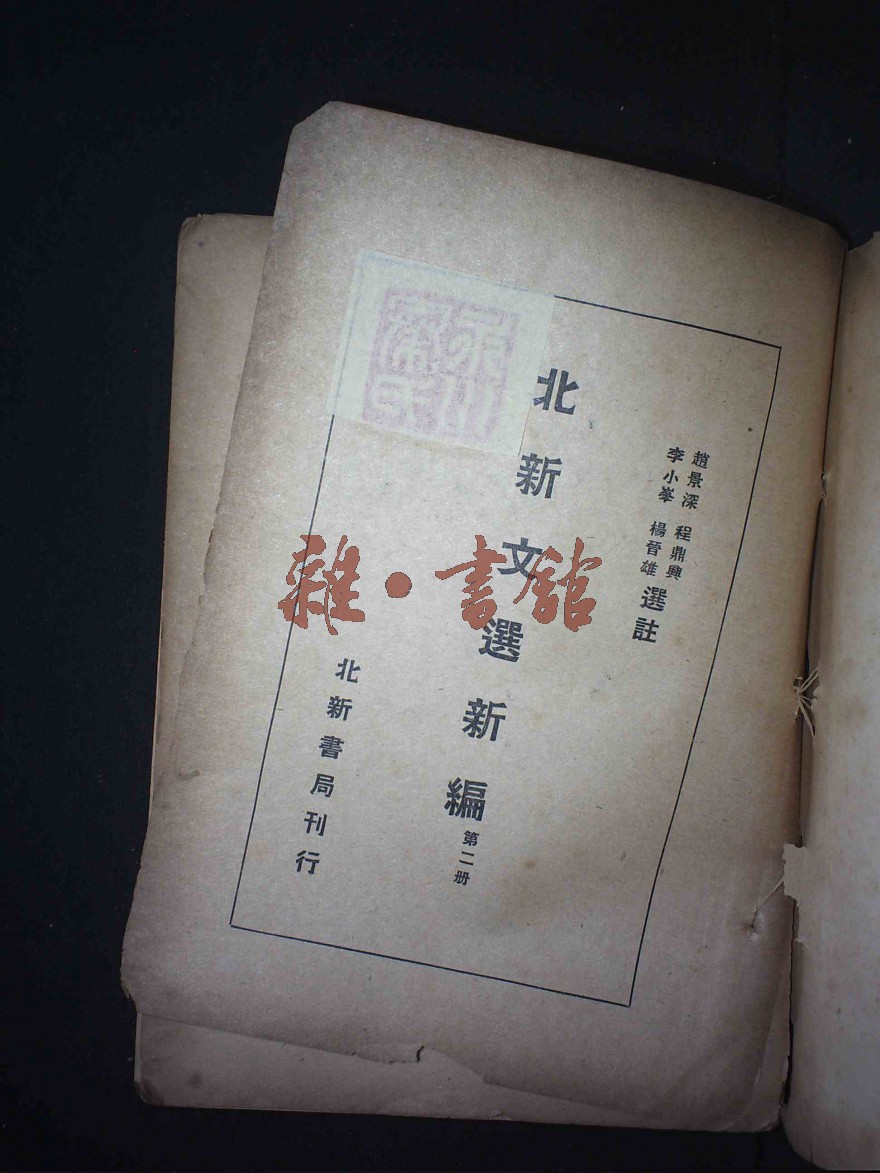 趙景深 程鼎興
李小峯 楊晉雄
選註
北新文選新編 第二册
北新書局刊行
雜·書館